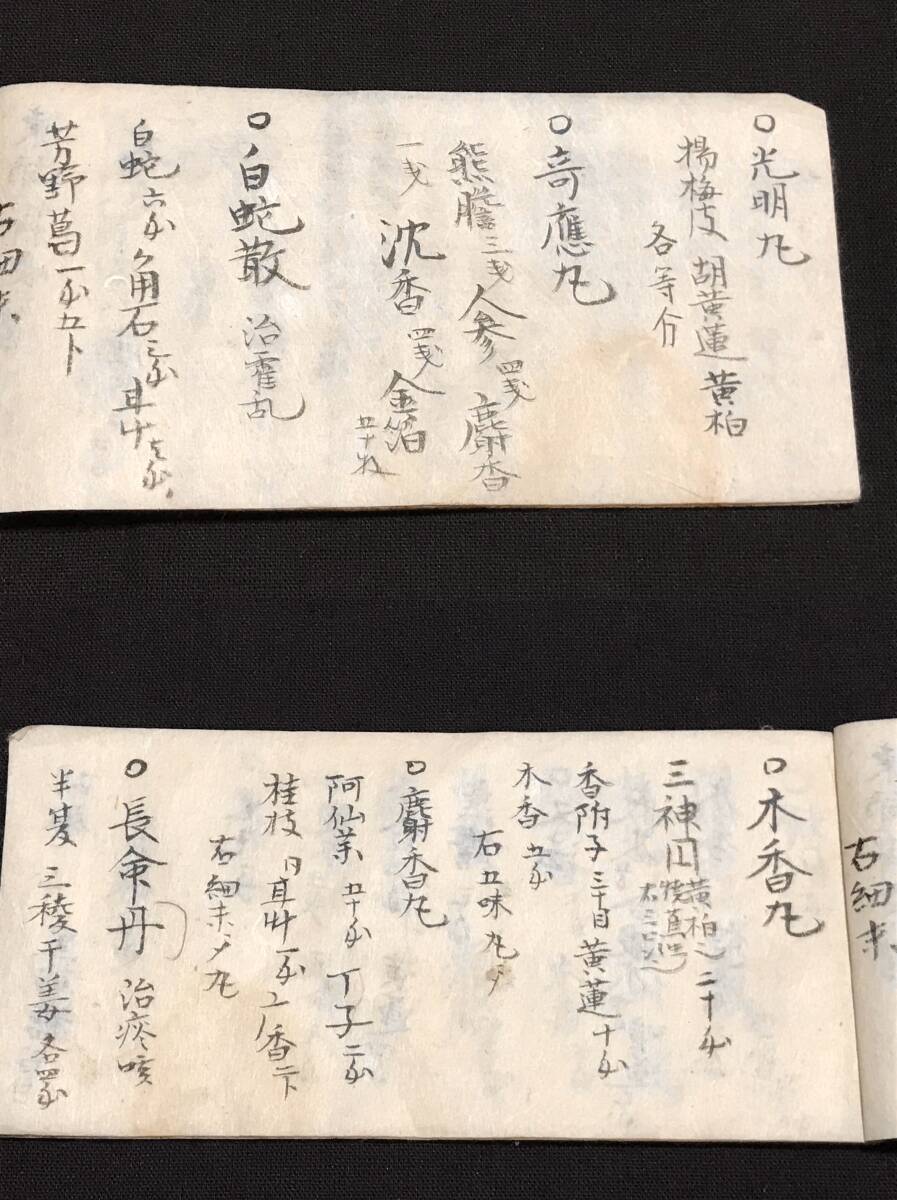 〇光明丸
楊梅皮 胡黄蓮 黄柏
各等分
〇奇應丸
熊膽三戔 人参四戔 麝香
一戔 沈香四戔 金箔
五十枚
〇白蛇散 治霍乱
白蛇六匁 角石三匁 甘艸
芳野葛一匁五卜
右細末
〇木香丸
三神円 黄柏 二十匁
香附子三十目 黄蓮十匁
木香五匁
右五味丸
〇麝香丸
阿仙薬五十匁 丁子二匁
桂枝 甘艸一匁 香二卜
右細末〆丸
〇長命丹 治痰咳
半夏 三稜 干姜 各四匁
右細末